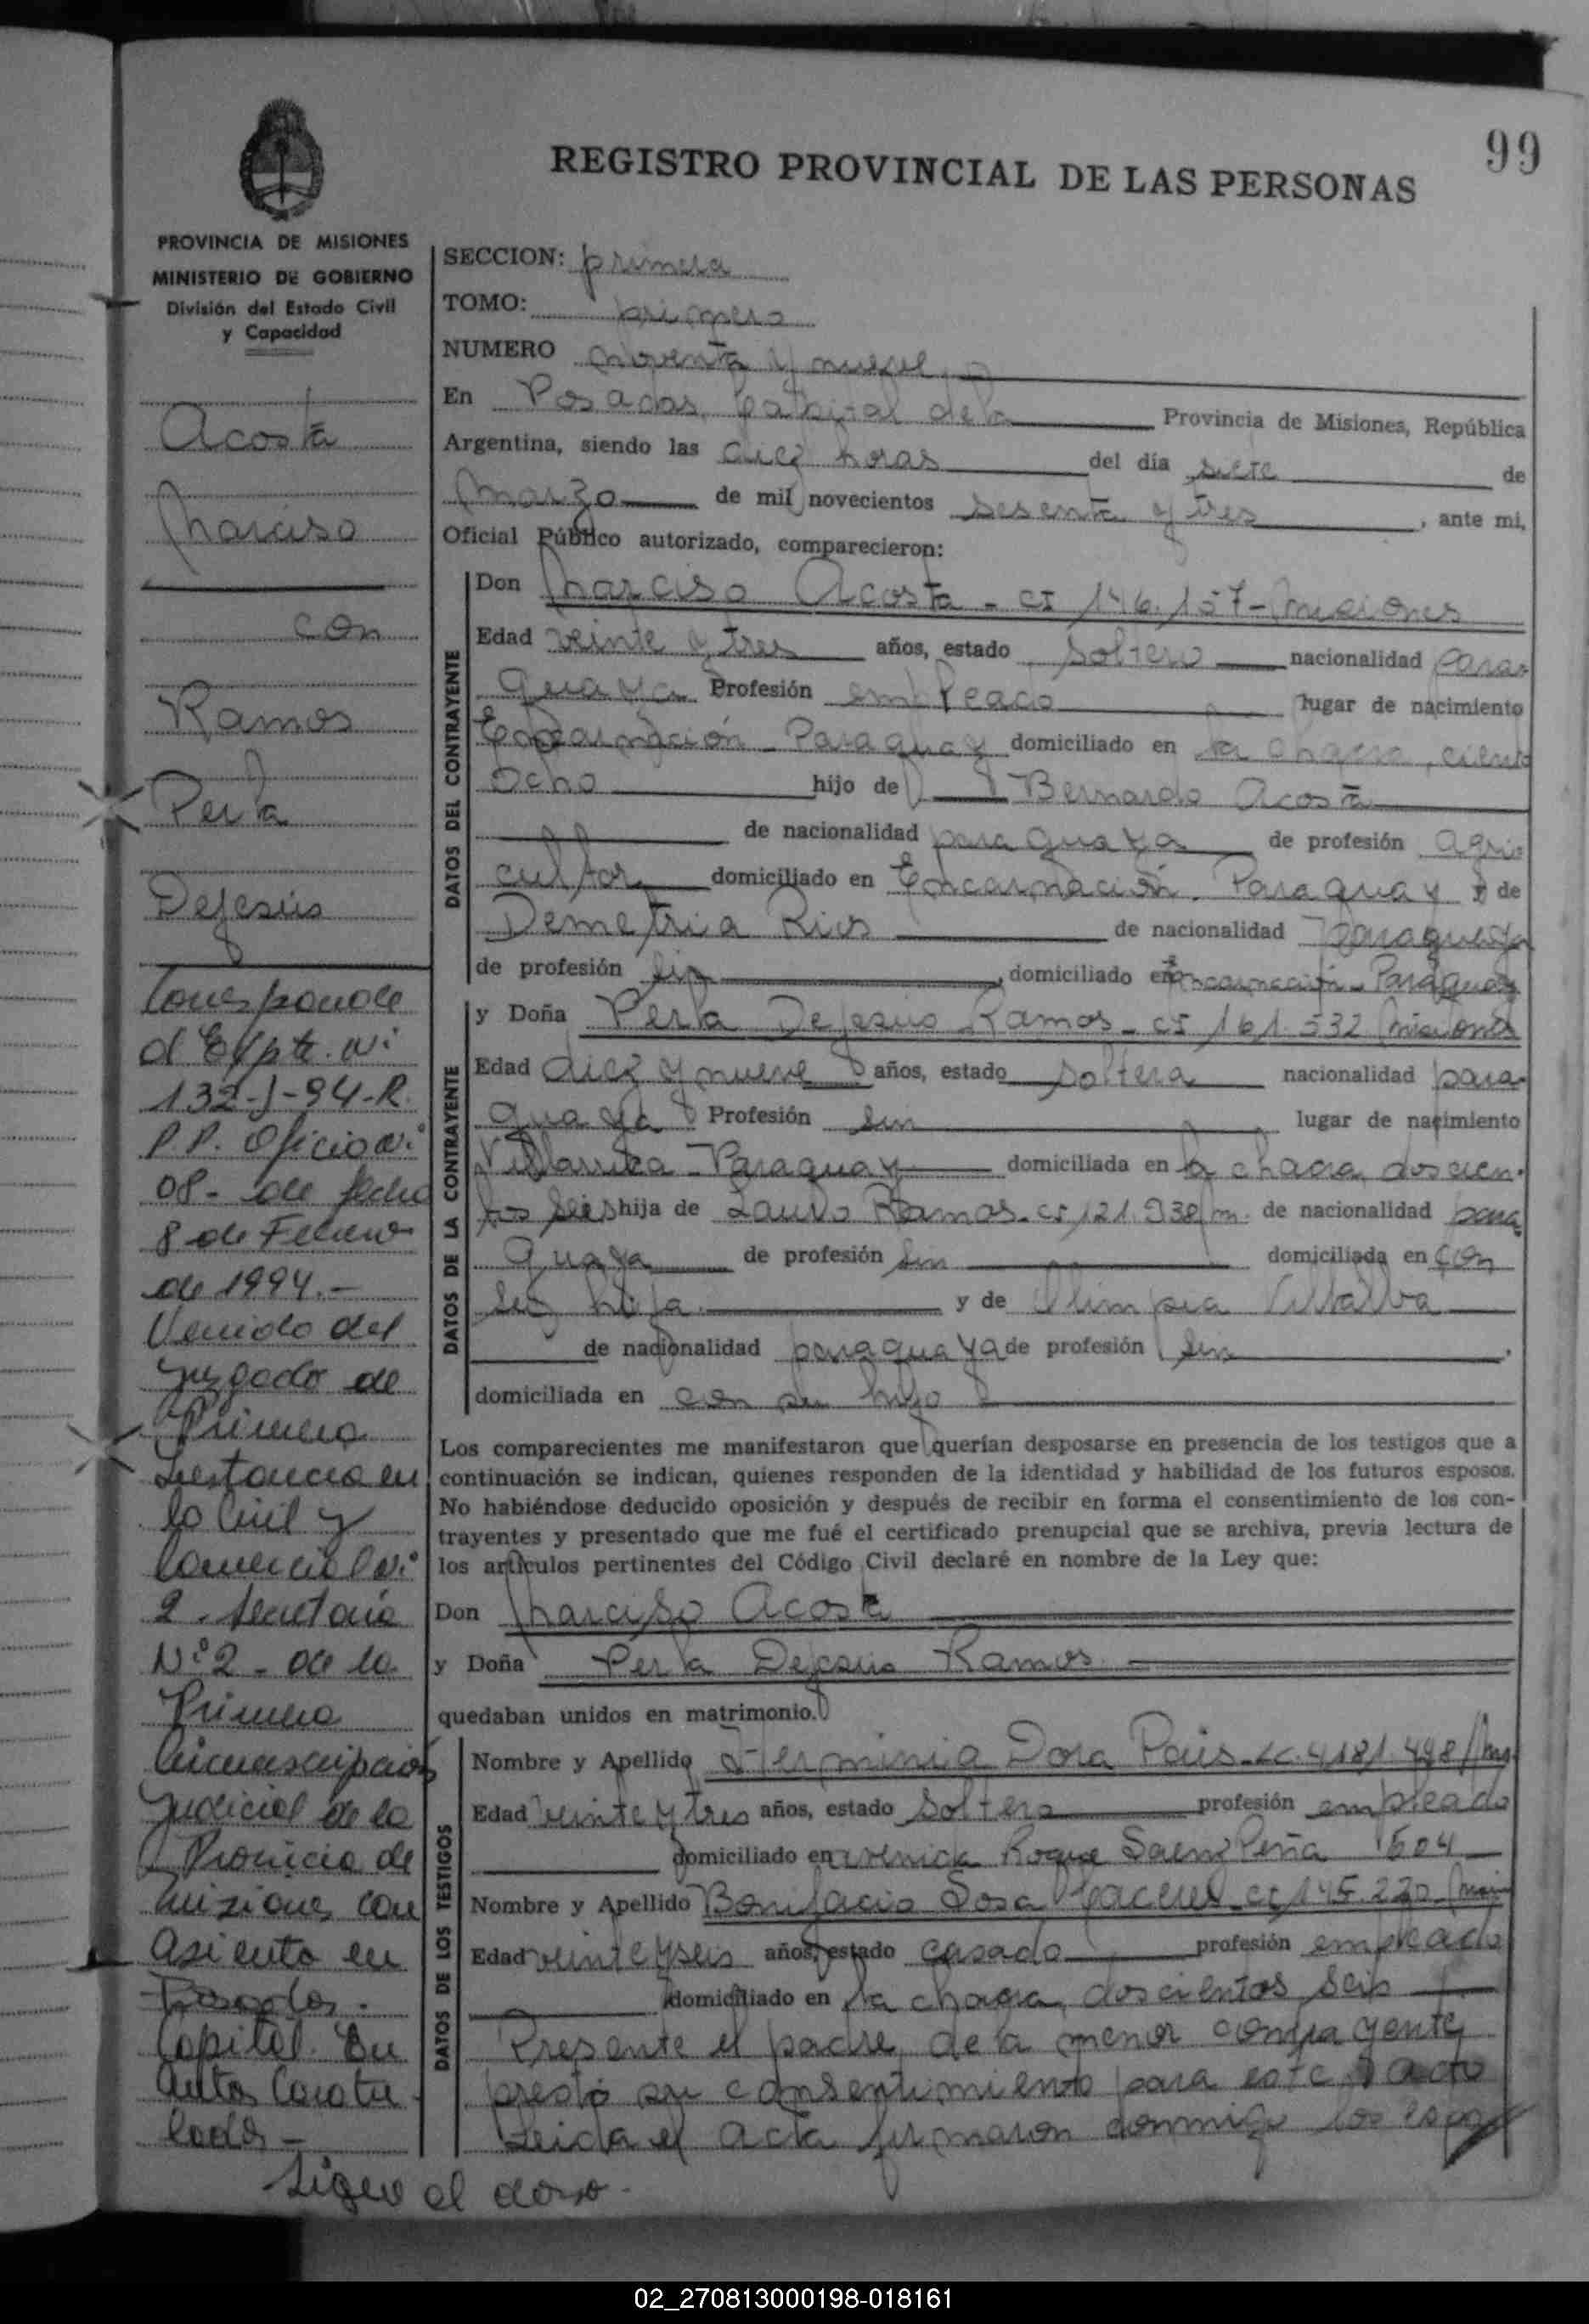 99
REGISTRO PROVINCIAL DE LAS PERSONAS
PROVINCIA DE MISIONES
MINISTERIO DE GOBIERNO
División del Estado Civil
y Capacidad
Acosta
Narciso
con
Ramos
Perla
Dejesús
Corresponde
al Expte. Nº
132-J-94-R.
P.P. Oficio Nº
08- de fecha
8 de Febrero
de 1994.-
Venido del
Juzgado de
Primera
Instancia en
lo Civil y
Comercial Nº
2 - Secretaria
Nº 2 - de la
Primera
Circunscripción
Judicial de la
Provincia de
Misiones con
asiento en
Posadas.
Capital. En
autos Caratu
lados -
Sigue al dorso.
SECCION: primera
TOMO: primero
NUMERO noventa y nueve
En Posadas, Capital de la Provincia de Misiones, República
Argentina, siendo las diez horas del día siete de
Marzo de mil novecientos sesenta y tres, ante mi,
Oficial Público autorizado, comparecieron:
DATOS DEL CONTRAYENTE
Don Narciso Acosta - CI 146.157 - Misiones
Edad veinte y tres años, estado soltero nacionalidad para-
guaya Profesión empleado lugar de nacimiento
Encarnación - Paraguay domiciliado en la chacra, ciento
ocho hijo de Bernardo Acosta
de nacionalidad paraguaya de profesión agri
cultor domiciliado en Encarnación. Paraguay y de
Demetria Rios de nacionalidad paraguaya
de profesión sin, domiciliado en Encarnación - Paraguay
DATOS DE LA CONTRAYENTE
y Doña Perla Dejesús Ramos - CI 161.532 Misiones
Edad diez y nueve años, estado soltera nacionalidad para-
guaya Profesión sin lugar de nacimiento
Villarrica - Paraguay domiciliada en la chacra, doscien-
tos seis hija de Lauro Ramos - CI 121.938/m. de nacionalidad para
guaya de profesión sin domiciliada en con
su hija y de Olimpia Villalba
de nacionalidad paraguaya de profesión sin
domiciliada en con su hijo
Los comparecientes me manifestaron que querían desposarse en presencia de los testigos que a
continuación se indican, quienes responden de la identidad y habilidad de los futuros esposos.
No habiéndose deducido oposición y después de recibir en forma el consentimiento de los con-
trayentes y presentado que me fué el certificado prenupcial que se archiva, previa lectura de
los artículos pertinentes del Código Civil declaré en nombre de la Ley que:
Don Narciso Acosta
y Doña Perla Dejesús Ramos
quedaban unidos en matrimonio.
DATOS DE LOS TESTIGOS
Nombre y Apellido Herminia Dora Pais - LC. 4181.498/Ms.
Edad veinte y tres años, estado soltera profesión empleado
domiciliado en avenida Roque Saenz Peña 1504
Nombre y Apellido Bonifacio Sosa CI 145.220
Edad veinte y seis años, estado casado profesión empleado
domiciliado en la chacra, doscientos seis
Presente el padre, de la menor contrayente
prestó su consentimiento para este acto
Leida el acta firmaron conmigo los espo
02_270813000198-018161